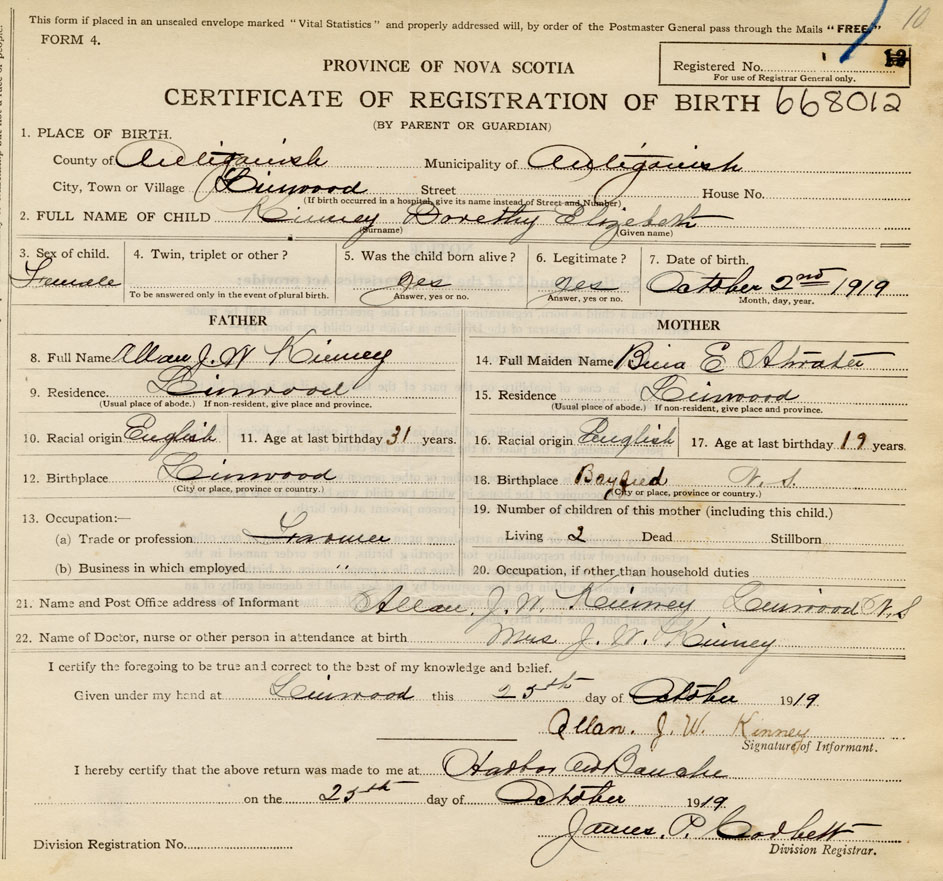 This form if placed in an unsealed envelope marked "Vital Statistics" and properly addressed will, by order of the Postmaster General pass through the Mails "FREE" 10
FORM 4.
Registered No.
For use of Registrar General only.
PROVINCE OF NOVA SCOTIA
CERTIFICATE OF REGISTRATION OF BIRTH 668012
(BY PARENT OR GUARDIAN)
1. PLACE OF BIRTH.
County of Antigonish Municipality of Antigonish
City, Town or Village Linwood Street House No.
(If birth occurred in a hospital, give its name instead of Street and Number)
2. FULL NAME OF CHILD Kinney Dorothy Elizabeth
(Surname) (Given name)
3. Sex of child. 4. Twin, triplet or other? 5. Was the child born alive? 6. Legitimate? 7. Date of birth.
Female yes yes October 2nd 1919
To be answered only in the event of plural birth. Answer, yes or no. Answer, yes or no. Month, day, year.
FATHER MOTHER
8. Full Name Allan J. W Kinney 14. Full Maiden Name Bina E Atwater
9. Residence. Linwood 15. Residence Linwood
(Usual place of abode.) If non-resident, give place and province. (Usual place of abode.) If non-resident, give place and province.
10. Racial origin English 11. Age at last birthday 31 years. 16. Racial origin English 17. Age at last birthday 19 years.
12. Birthplace Linwood 18. Birthplace Bayfied N. S.
(City or place, province or country.) (City or place, province or country.)
13. Occupation:— 19. Number of children of this mother (including this child.)
(a) Trade or profession Farmer Living 2 Dead Stillborn
(b) Business in which employed " 20. Occupation, if other than household duties
21. Name and Post Office address of Informant Allan. J. W. Kinney Linwood N.S
22. Name of Doctor, nurse or other person in attendance at birth Mrs J. W. Kinney
I certify the foregoing to be true and correct to the best of my knowledge and belief.
Given under my hand at Linwood this 25th day of October 1919
Allan. J. W. Kinney
Signature of Informant.
I hereby certify that the above return was made to me at Harbor au Bouche
on the 25th day of October 1919.
James. P. Corbett
Division Registration No. Division Registrar.